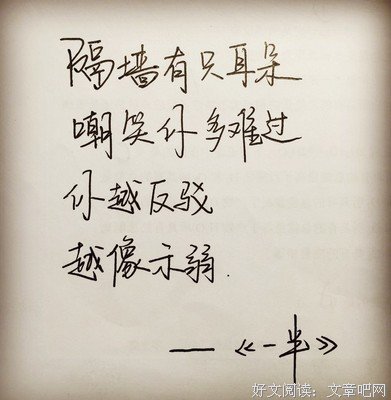 隔墙有只耳朵
嘲笑你多难过
你越反驳
越像示弱.
——《一半》
好文阅读：文章吧网